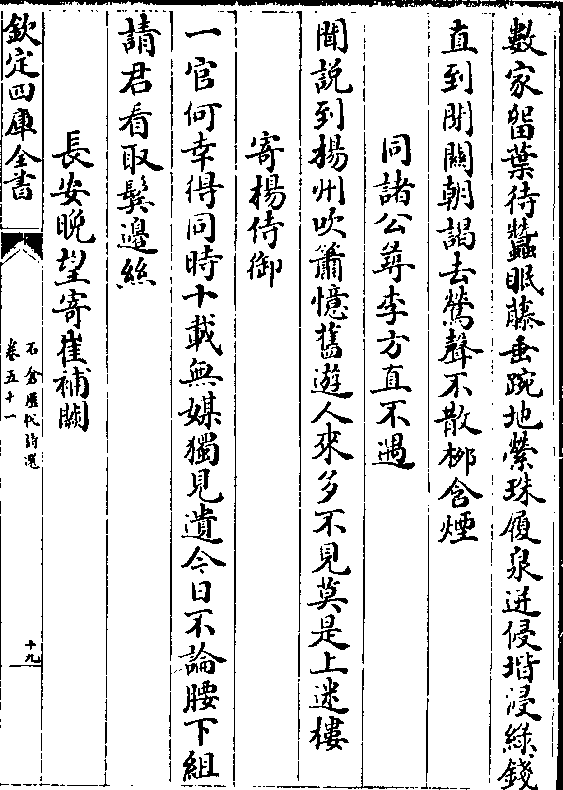 數家留葉待蠶眠藤垂踠地縈珠履泉迸侵堦浸緑錢
直到閉關朝謁去鶯聲不散栁含煙
同諸公尋李方直不遇
聞説到揚州吹簫憶舊遊人來多不見莫是上迷樓
寄楊侍御
一官何幸得同時十載無媒獨見遺今日不論腰下組
請君看取鬢邊絲
長安晚望寄崔補闕
欽定四庫全書
石倉歴代詩選
卷五十一
十九